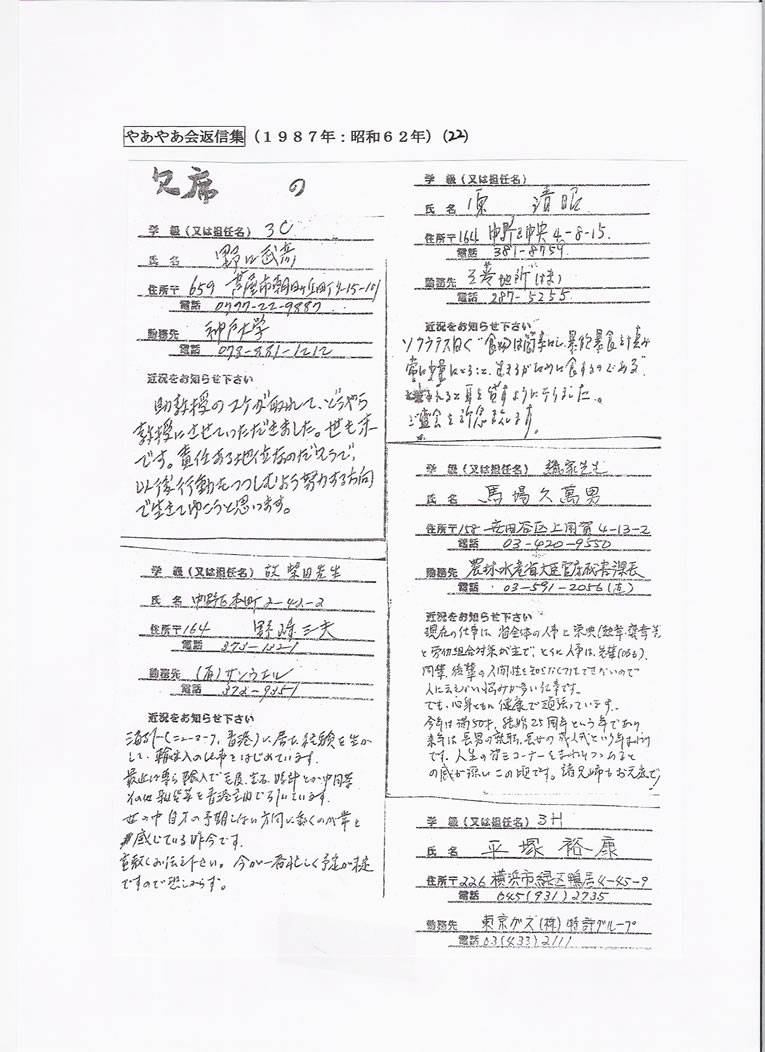 やあやあ会返信集（１９８７年：昭和６２年）(22)
欠席 の
学 級（又は担任名） 3C
氏 名 野口武彦
住所〒659 芦屋市朝日ヶ丘町9-15-151
電話 0797-22-9887
勤務先 神戸大学
電話 078-881-1212
近況をお知らせ下さい
助教授のスケが取れて、どうやら
教授にさせていただきました。世も末
です。責任ある地位なのだそうで、
以後行動をつつしむよう努力する方向
で生きてゆこうと思います。
学 級（又は担任名） 故 柴田先生
氏 名 中野区本町2-42-2
住所〒164 野崎三夫
電話 373-1321
勤務先 (有)サンウエル
電話 372-9351
近況をお知らせ下さい
(ニューヨーク、香港)に居た経験を生か
して、輸出入の仕事をはじめています。
時計とか中国茶
世の中自分の予期しない方向に動くのが常と
感じている昨今です。
今が一番忙しく予定が未定
ですので悪しからず。
学 級（又は担任名）
氏 名 原 清昭
住所〒164 中野区中央4-8-15
電話 381-8759
勤務先 三菱地所(株)
電話 287-5255
近況をお知らせ下さい
ソクラテス曰く"食物は簡単にし、暴飲暴食を慎み
生きるがために食するのである"
と耳を貸すようになりました。
ご盛会を祈念致します。
学 級（又は担任名）
氏 名 馬場久萬男
住所〒158 世田谷区上用賀4-13-2
電話 03-420-9550
勤務先 農林水産省大臣官房秘書課長
電話 03-591-2056(直)
近況をお知らせ下さい
現在の仕事は、省全体の人事と栄典(叙勲、褒章等)
と労働組合対策が主で、とくに人事は先輩(OBも)、
同輩、後輩の人間性を知らなくてはできないので
人に言えない悩みが多い仕事です。
でも、心身ともに健康で頑張っています。
今年は満50才、結婚25周年という年であり
来年は長男の就職、長女の成人式という年まわり
です。人生の第三コーナーをまわりつつあると
の感が深いこの頃です。諸兄姉もお元気で
学 級（又は担任名） 3H
氏 名 平塚裕康
住所〒226 横浜市緑区鴨居4-45-9
電話 045(931)2735
勤務先 東京ガス(株)特許グループ
電話 03(433)2111